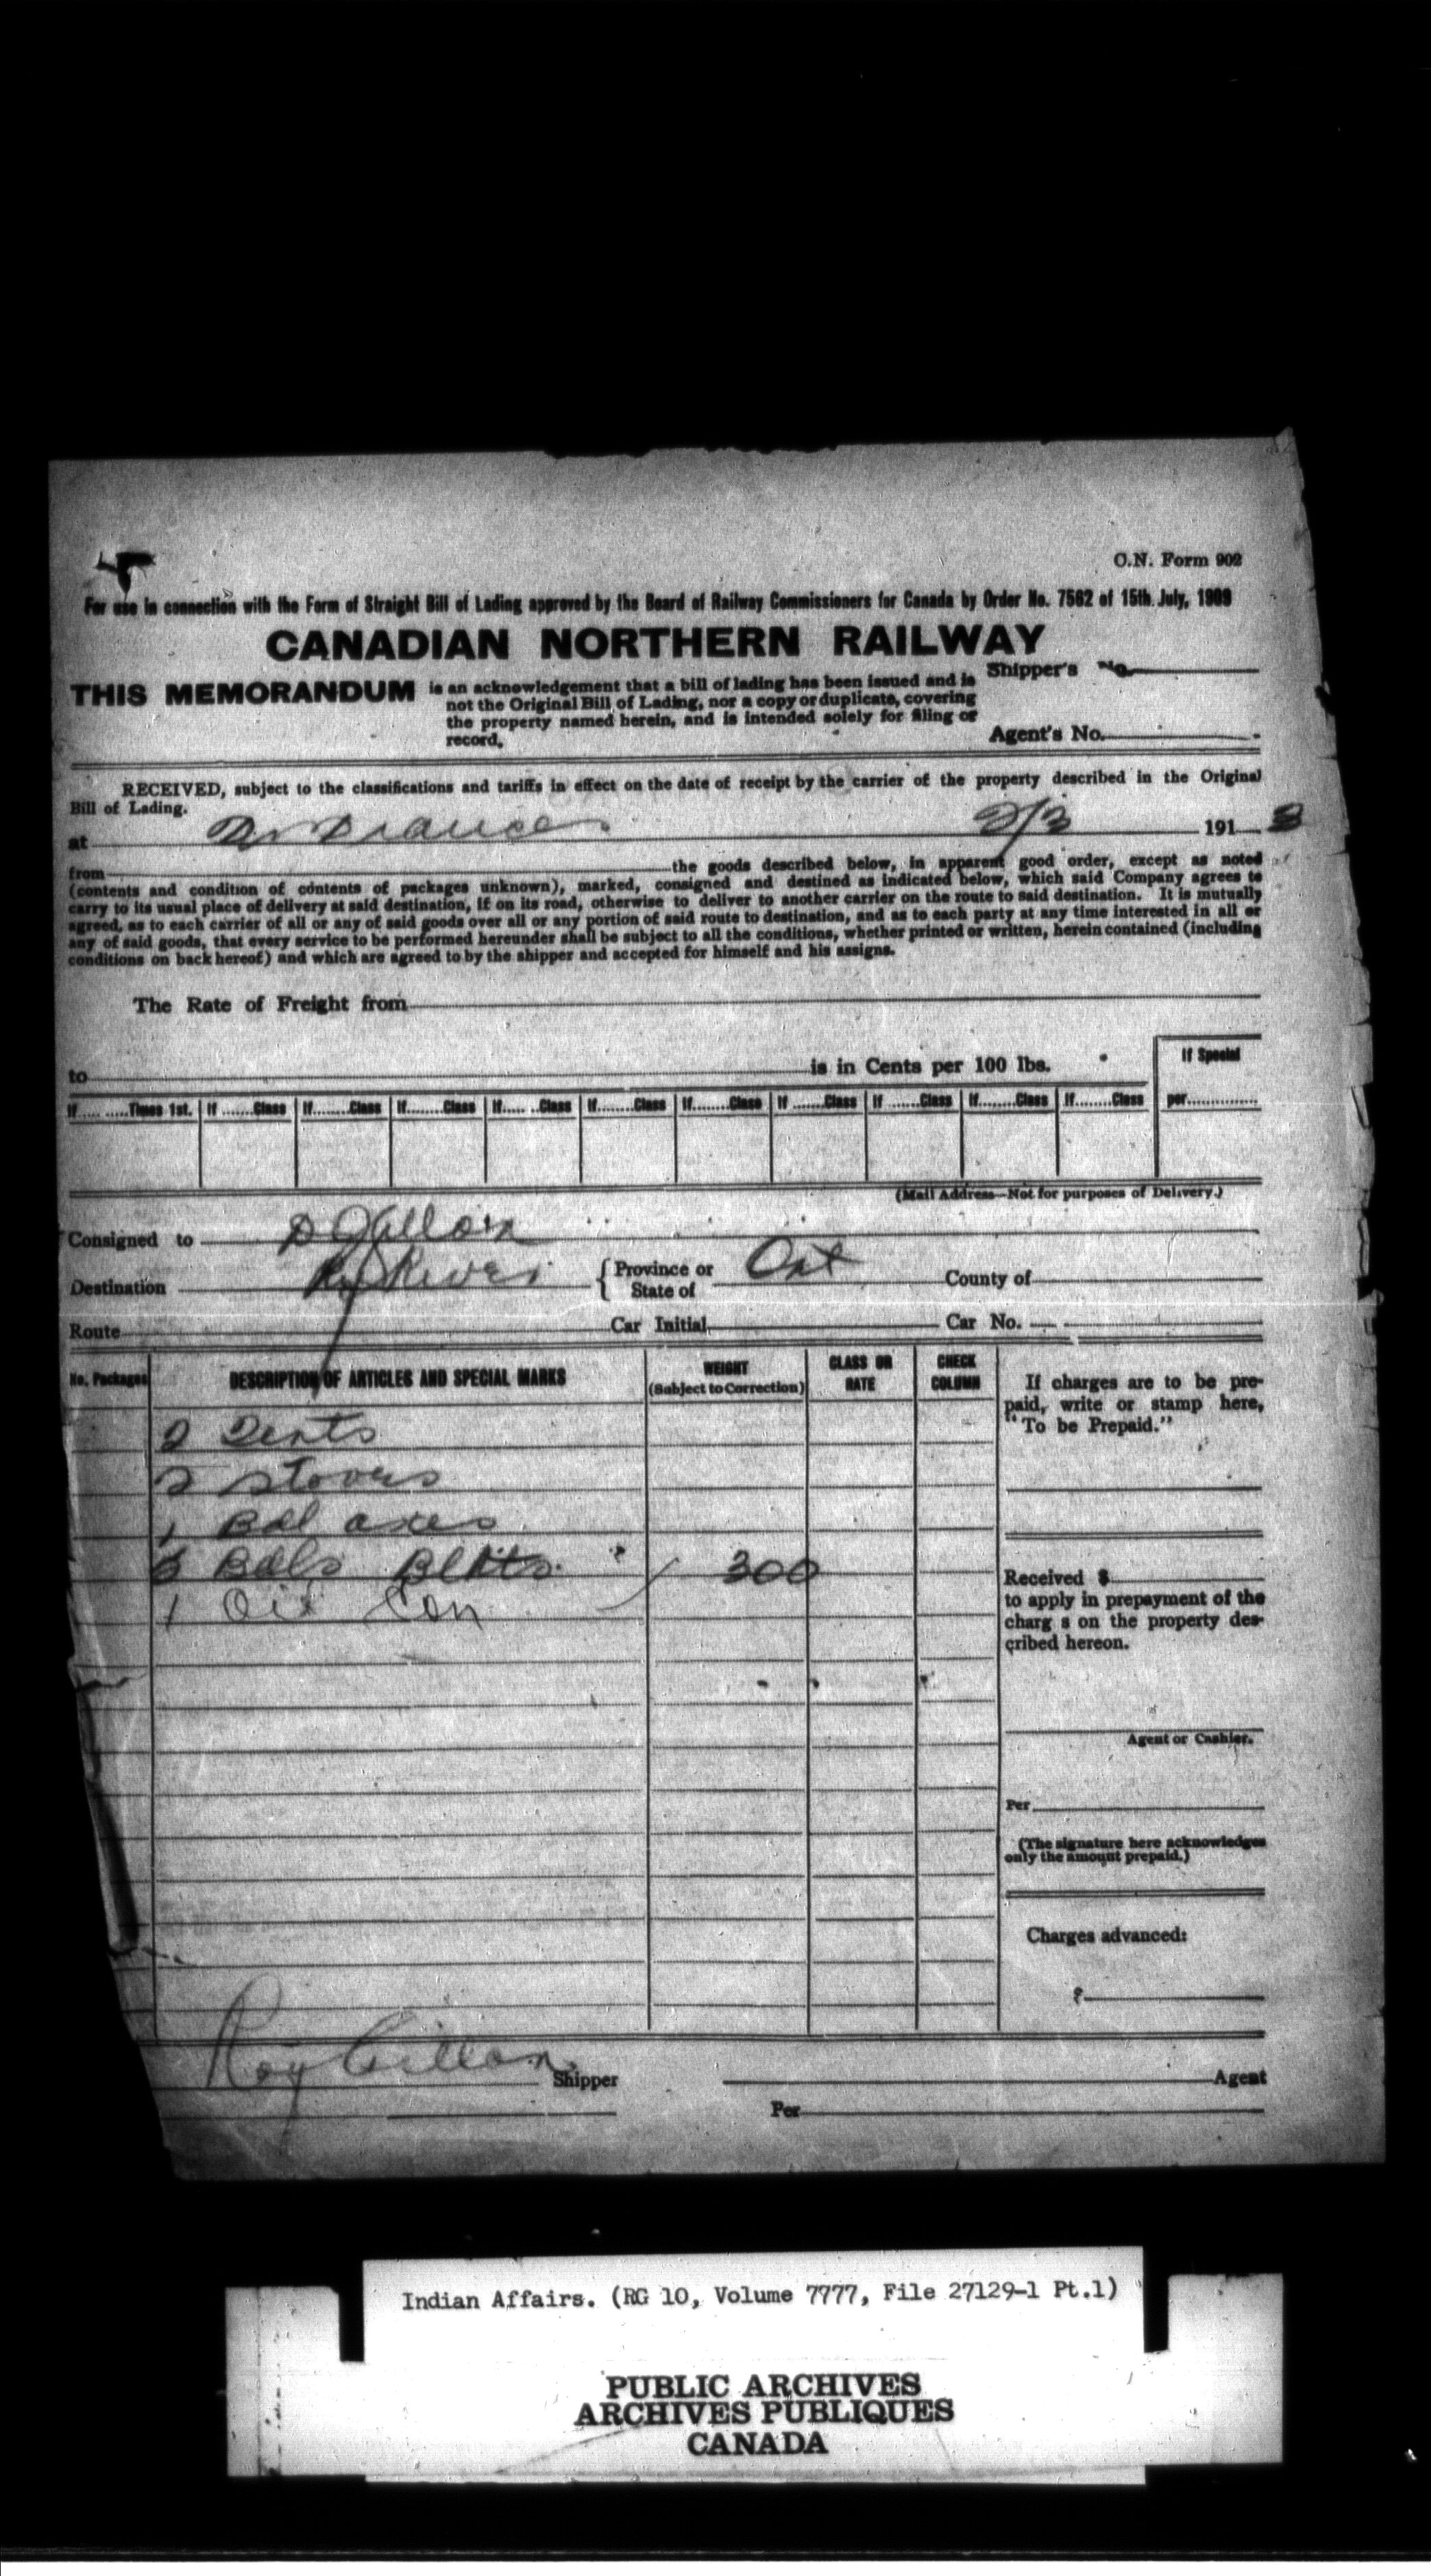 C.N. Form 902
For use in connection with the Form of Straight Bill of Lading approved by the Board of Railway Commissioners for Canada by Order No. 7562 of 15th July, 1909
CANADIAN NORTHERN RAILWAY
THIS MEMORANDUM is an acknowledgement that a bill of lading has been issued and is
not the Original Bill of Lading, nor a copy or duplicate, covering
the property named herein, and is intended solely for filing or
record.
Shipper's No.
Agent's No.
RECEIVED, subject to the classifications and tariffs in effect on the date of receipt by the carrier of the property described in the Original
Bill of Lading.
at Frances 3/3 1913
from the goods described below, in apparent good order, except as noted
(contents and condition of contents of packages unknown), marked, consigned and destined as indicated below, which said Company agrees to
carry to its usual place of delivery at said destination, if on its road, otherwise to deliver to another carrier on the route to said destination. It is mutually
agreed, as to each carrier of all or any of said goods over all or any portion of said route to destination, and as to each party at any time interested in all or
any of said goods, that every service to be performed hereunder shall be subject to all the conditions, whether printed or written, herein contained (including
conditions on back hereof) and which are agreed to by the shipper and accepted for himself and his assigns.
The Rate of Freight from
to is in Cents per 100 lbs.
If Special
If Times 1st. If Class If Class If Class If Class If Class If Class If Class If Class If Class If Class per
(Mail Address—Not for purposes of Delivery.)
Consigned to D Gillon
Destination Ry River { Province or State of Ont County of
Route Car Initial Car No.
No. Packages DESCRIPTION OF ARTICLES AND SPECIAL MARKS WEIGHT (Subject to Correction) CLASS OR RATE CHECK COLUMN
2 Tents
2 Stoves
1 Bdl axes
3 Bdls Blkts 300
1 Oil Can
If charges are to be pre-
paid, write or stamp here,
"To be Prepaid."
Received $
to apply in prepayment of the
charg s on the property des-
cribed hereon.
Agent or Cashier.
Per
(The signature here acknowledges
only the amount prepaid.)
Charges advanced:
$
Roy Gillon Shipper Agent
Per
Indian Affairs. (RG 10, Volume 7777, File 27129-1 Pt.1)
PUBLIC ARCHIVES
ARCHIVES PUBLIQUES
CANADA